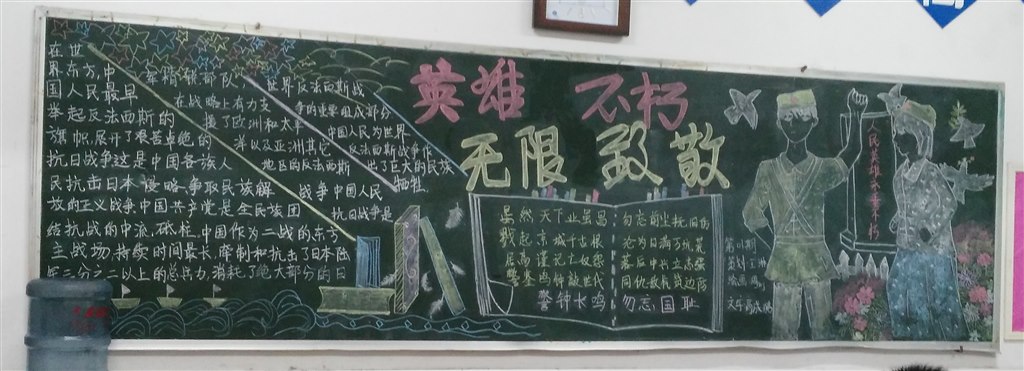 在世
界东方,中
国人民最早
举起反法西斯的
旗帜,展开了艰苦卓绝的
抗日战争这是中国各族人
民抗击日本侵略争取民族解
放的正义战争中国共产党是全民族团
结抗战的中流砥柱.中国作为二战的东方
主战场,持续时间最长,牵制和抗击了日本陆
军三分之二以上的总兵力,消耗了绝大部分的日
军精锐部队,
在战略上有力支
援了欧洲和太平
洋以及亚洲其它
地区的反法西斯
战争中国人民
抗日战争是
世界反法西斯战
争的重要组成部分
中国人民为世界
反法西斯战争作
出了巨大的民族
牺牲.
英雄 不朽
无限 致敬
虽然天下
戮起京城千古恨
警钟长鸣
勿忘
沦为日
同仇敌
勿忘国耻
人民英雄永垂不朽